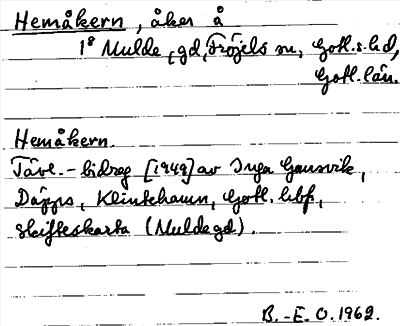 Hemåkern, åker å
1⁸ Mulde, gd, Fröjels sn, Gotl. s. hd,
Gotl. län.
Hemåkern.
Tävl.-bidrag [1949] av Inga Gansvik,
Däpps, Klintehamn, Gotl. hbf,
skifteskarta (Mulde gd).
B.-E. O. 1962.